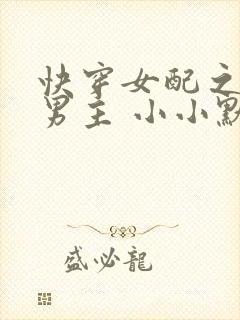 快穿女配之
男主 小小默
盛必龍